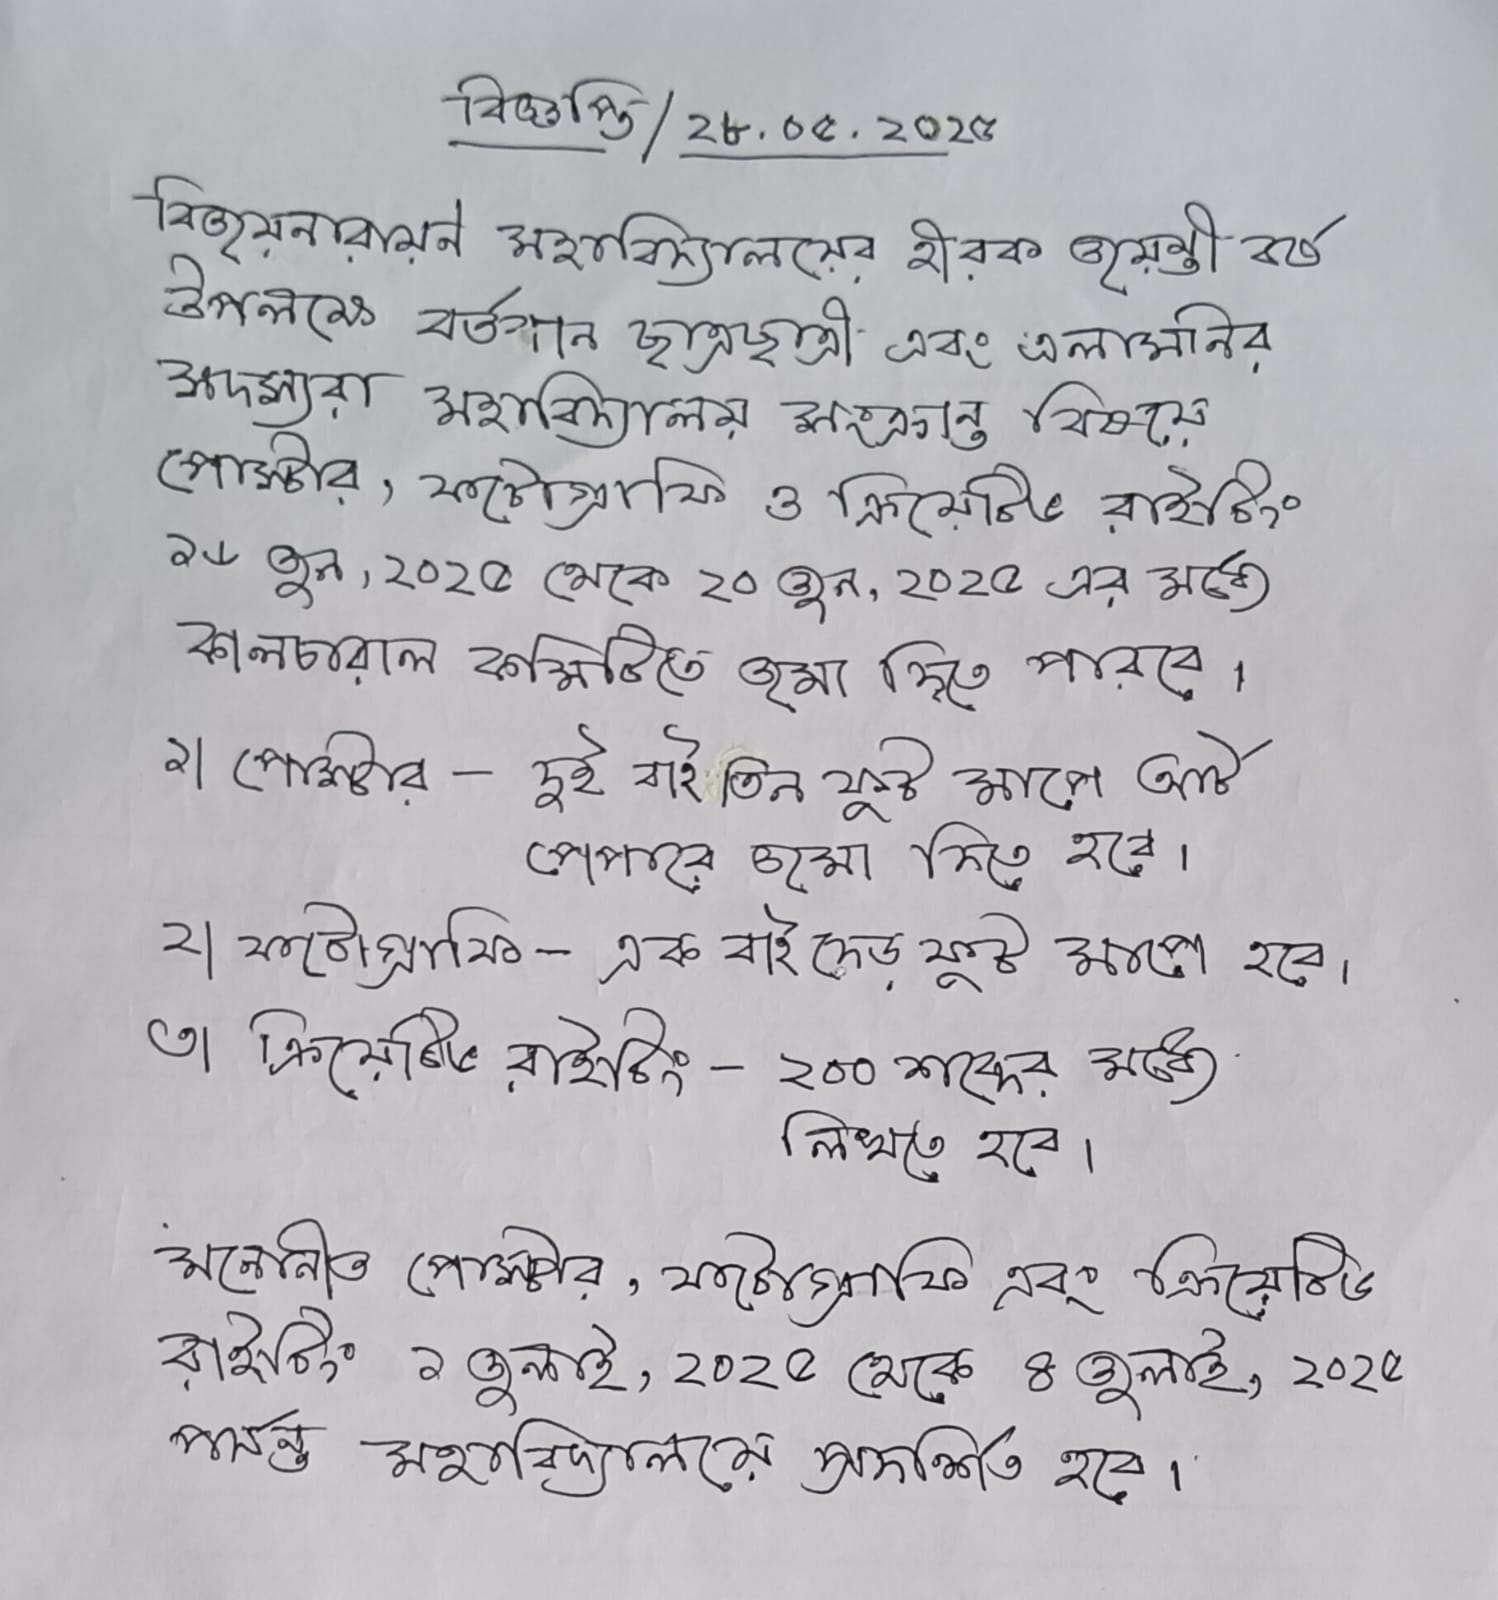 বিজ্ঞপ্তি / ২৮.০৫.২০২৫
বিজয়নারায়ন মহাবিদ্যালয়ের হীরক জয়ন্তী বর্ষ
উপলক্ষে বর্তমান ছাত্রছাত্রী এবং এলামনির
সদস্যরা মহাবিদ্যালয় সংক্রান্ত বিষয়ে
পোস্টার, ফটোগ্রাফি ও ক্রিয়েটিভ রাইটিং
১৮ জুন, ২০২৫ থেকে ২০ জুন, ২০২৫ এর মধ্যে
কালচারাল কমিটিতে জমা দিতে পারবে।
১। পোস্টার – দুই বাই তিন ফুট মাপে আর্ট
পেপারে জমা দিতে হবে।
২। ফটোগ্রাফি – এক বাই দেড় ফুট মাপে হবে।
৩। ক্রিয়েটিভ রাইটিং – ২০০ শব্দের মধ্যে
লিখতে হবে।
মনোনীত পোস্টার, ফটোগ্রাফি এবং ক্রিয়েটিভ
রাইটিং ১ জুলাই, ২০২৫ থেকে ৪ জুলাই, ২০২৫
পর্যন্ত মহাবিদ্যালয়ে প্রদর্শিত হবে।